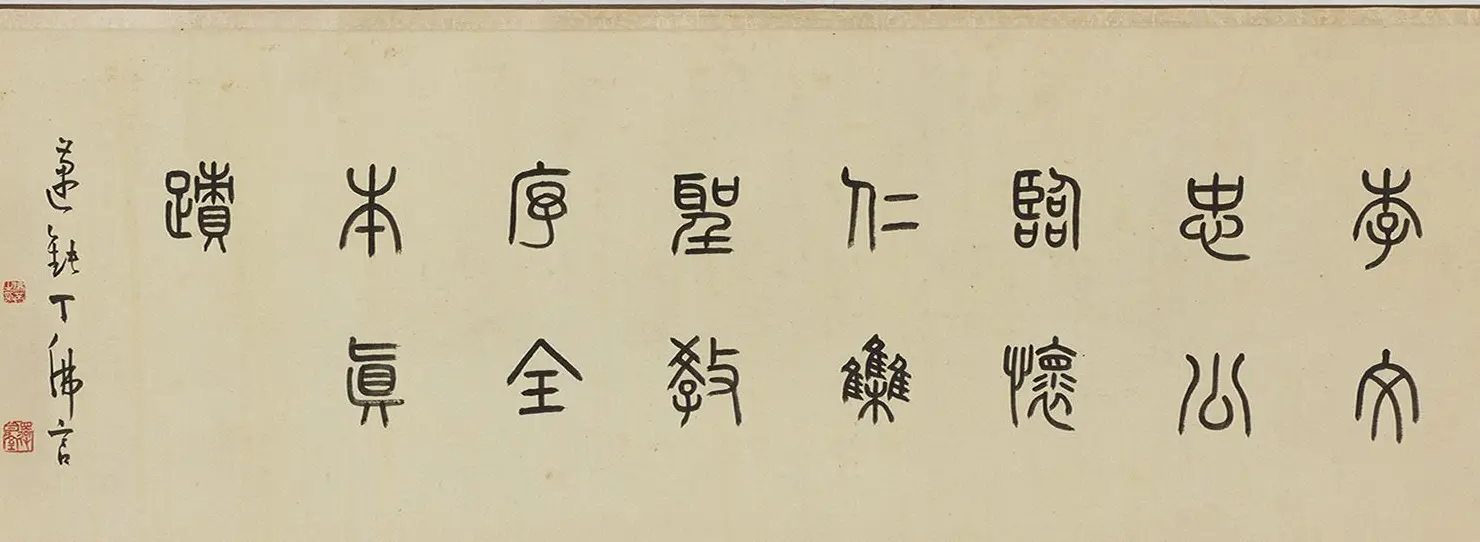 李文
忠公
臨懷
仁集
聖教
序全
本真
蹟
邁鈍丁佛言